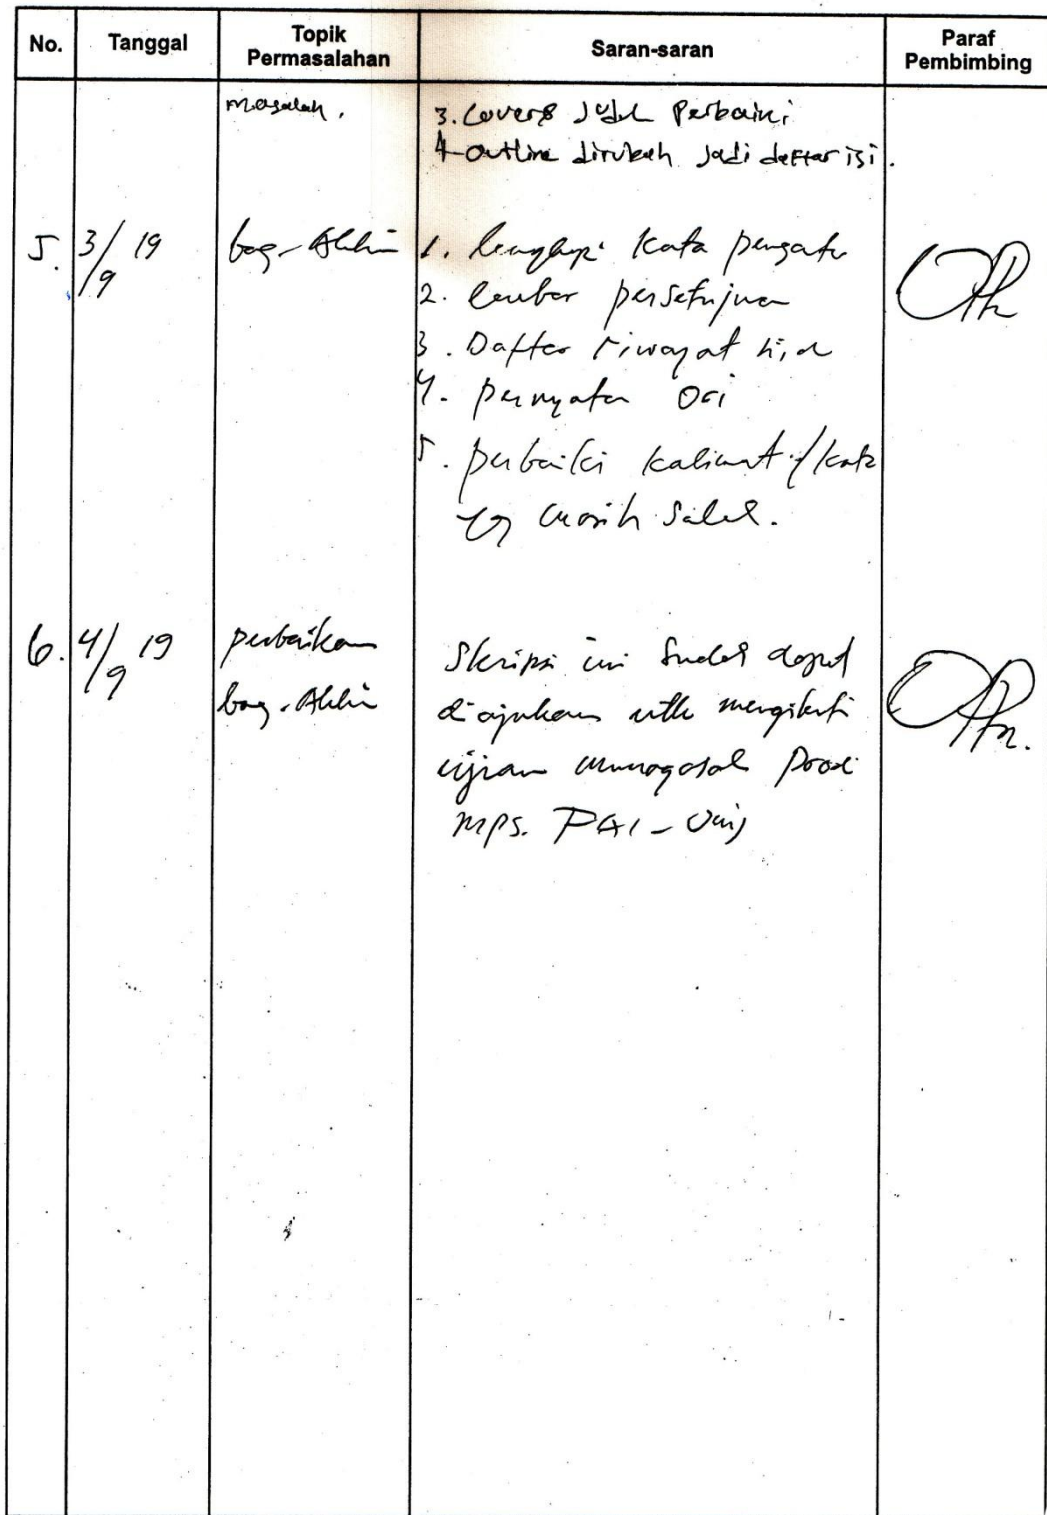 No.
Tanggal
Topik
Permasalahan
Saran-saran
Paraf
Pembimbing
masalah.
3. Covers Judul Perbaiki
4. Outline dirubah jadi daftar isi.
5. 3/9 19
bag-Akhir
1. lengkapi kata pengatar
2. lembar persetujuan
3. Daftar riwayat
4. pernyatan Ori
5. perbaiki kalimat / kata
yg masih salah.
6. 4/9 19
perbaikan
bag-Akhir
Skripsi ini sudah dapat
diajukan utk mengikuti
ujian munaqosah Prodi
PAI -